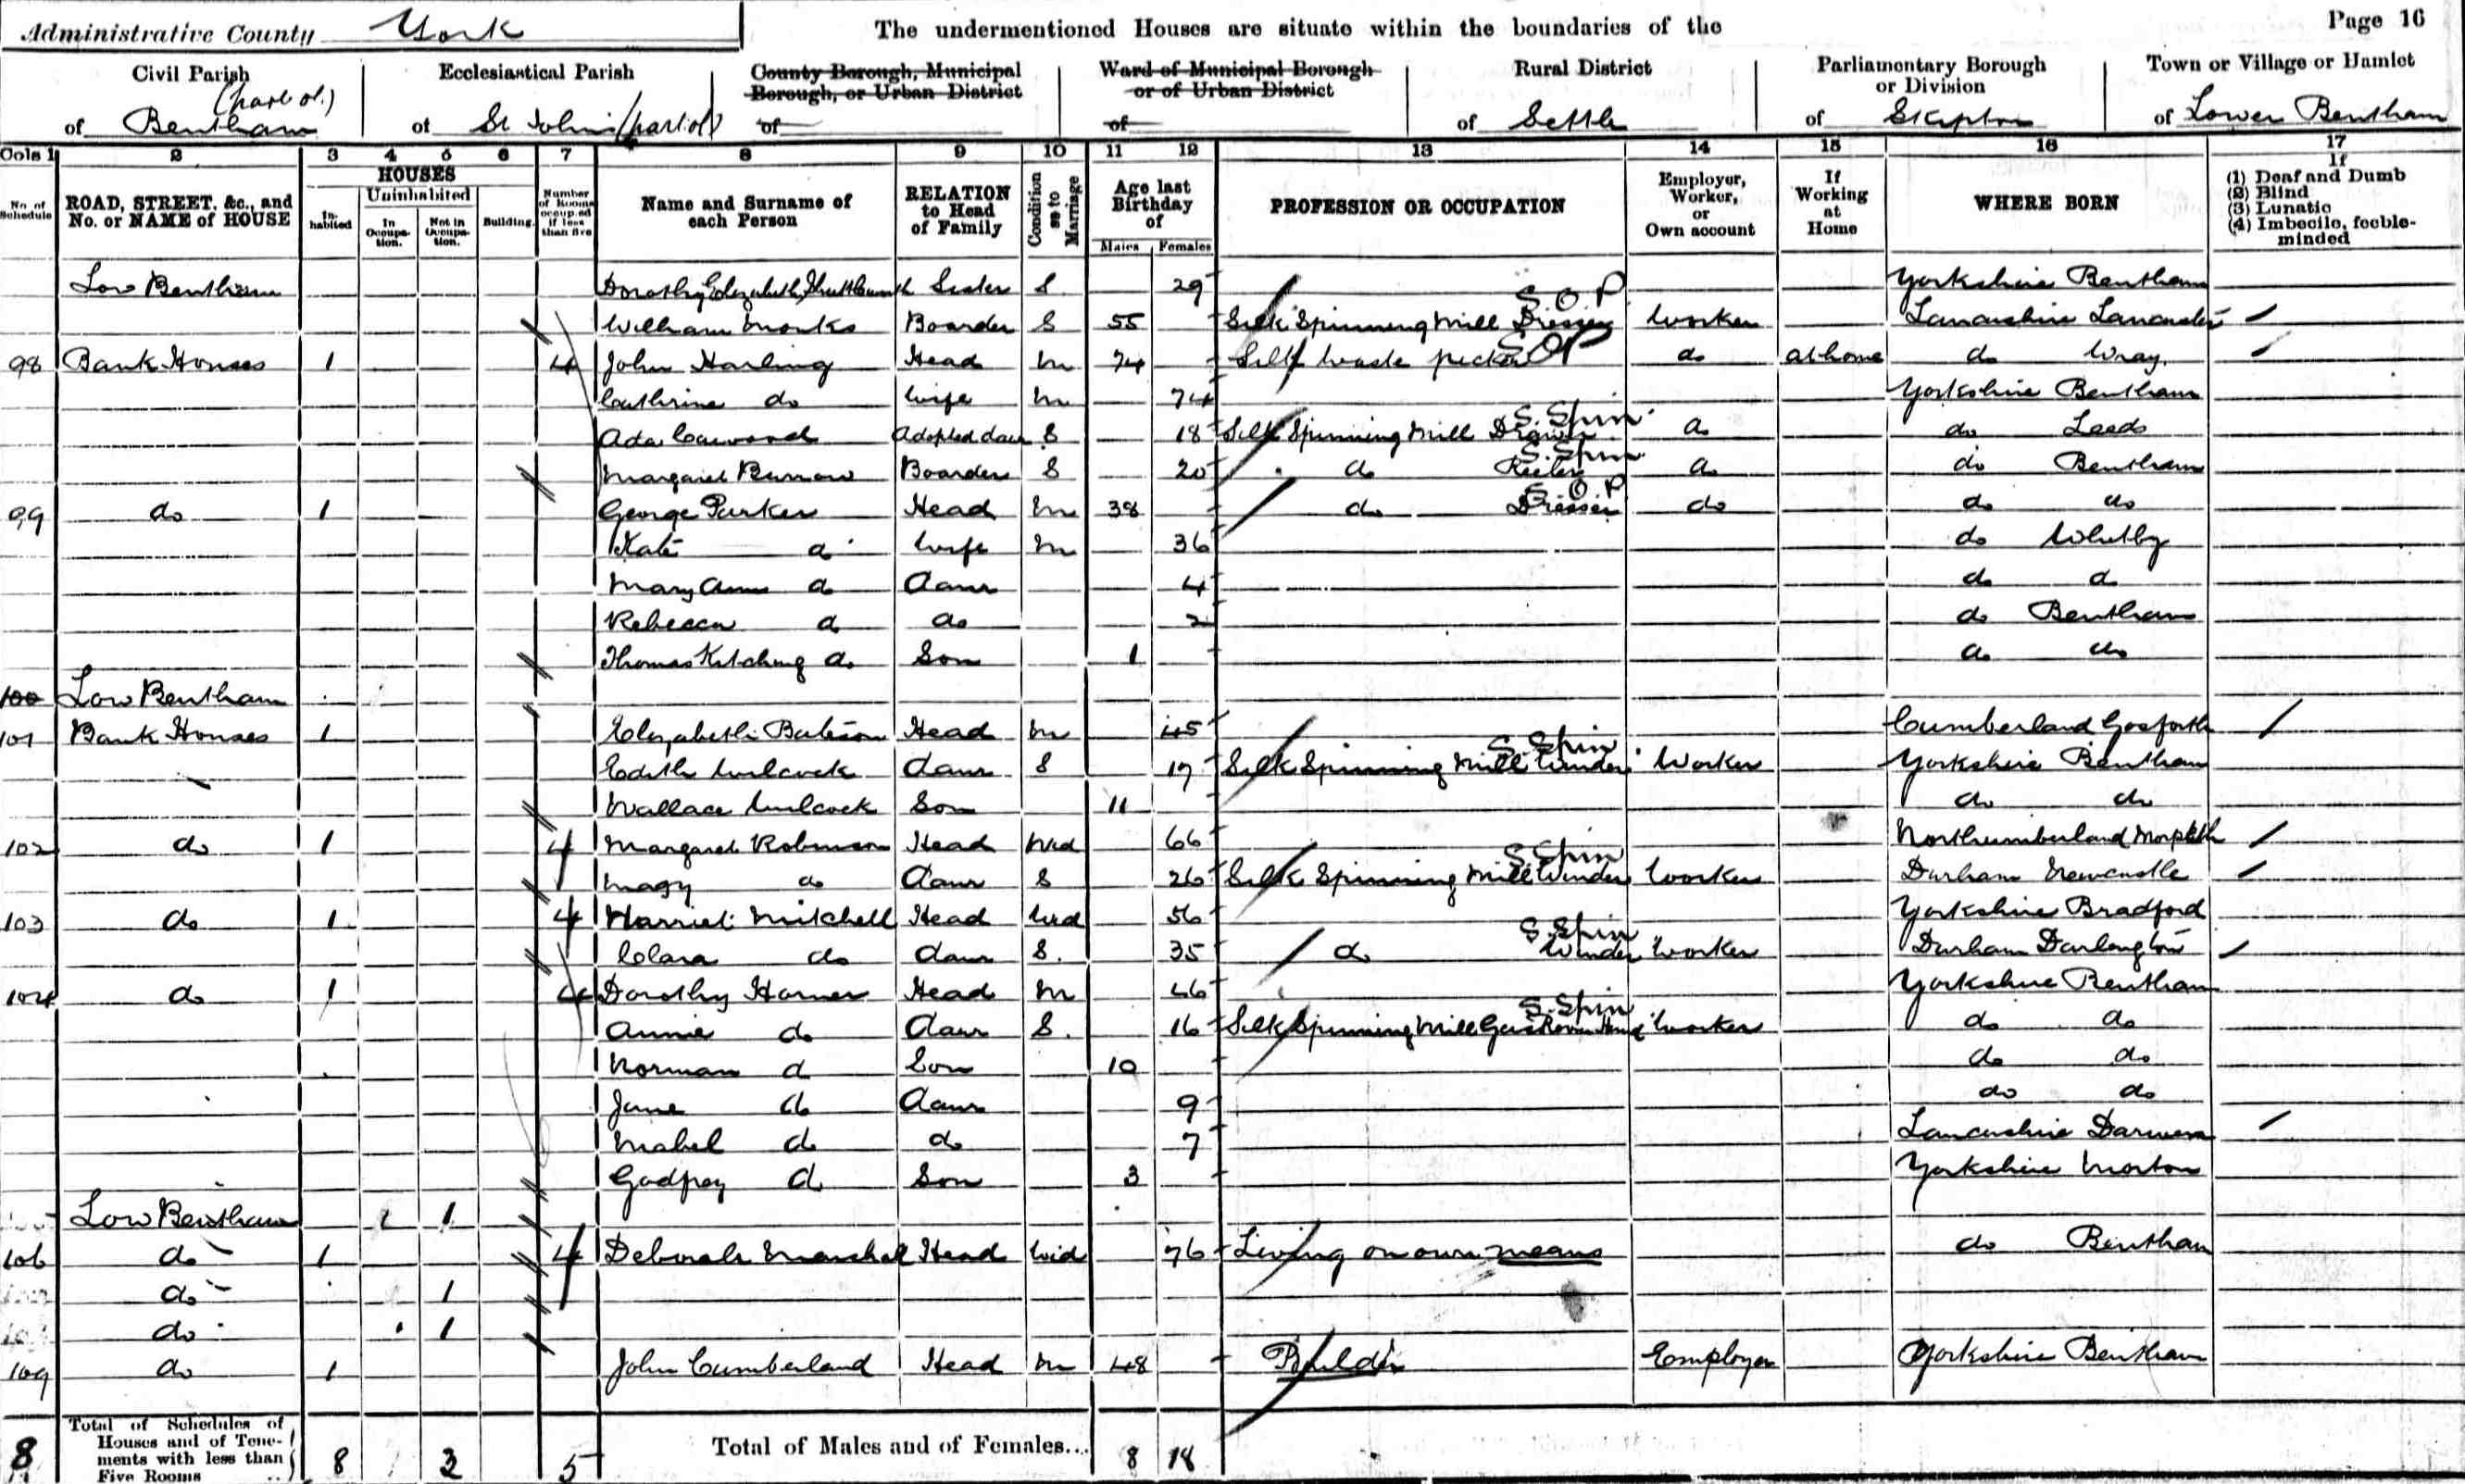 Page 16
Administrative County York The undermentioned Houses are situate within the boundaries of the
Civil Parish Ecclesiastical Parish County Borough, Municipal Borough, or Urban District Ward of Municipal Borough or of Urban District Rural District Parliamentary Borough or Division Town or Village or Hamlet
of Bentham (part of) of St Johns (part of) of of of Settle of Skipton of Lower Bentham
Cols 1 2 3 4 5 6 7 8 9 10 11 12 13 14 15 16 17
No. of Schedule ROAD, STREET, &c., and No. or NAME of HOUSE HOUSES Inhabited Uninhabited In Occupation. Not in Occupation. Building. Number of Rooms occupied if less than five Name and Surname of each Person RELATION to Head of Family Condition as to Marriage Age last Birthday of Males Females PROFESSION OR OCCUPATION Employer, Worker, or Own account If Working at Home WHERE BORN If (1) Deaf and Dumb (2) Blind (3) Lunatic (4) Imbecile, feeble-minded
Low Bentham Dorothy Elizabeth Sister S 29 Yorkshire Bentham
William Monks Boarder S 55 Silk Spinning Mill Dresser S.O.P Worker Lancashire Lancaster
98 Bank Houses 1 4 John Harling Head M 74 Silk waste picker S.O.P do at home do Wray
Cathrine do Wife M 74 Yorkshire Bentham
Ada Cawood Adopted daur S 18 Silk Spinning Mill Drawer S. Spin do do Leeds
Margaret Burrow Boarder S 20 do Reeler S. Spin do do Bentham
99 do 1 George Parker Head M 38 do Dresser S.O.P do do do
Kate do Wife M 36 do Whitby
Mary Ann do Daur 4 do do
Rebecca do do 2 do Bentham
Thomas Kitching do Son 1 do do
100 Low Bentham
101 Bank Houses 1 Elizabeth Bateson Head M 45 Cumberland Gosforth
Edith Wilcock Daur S 17 Silk Spinning Mill Winder S. Spin Worker Yorkshire Bentham
Wallace Wilcock Son 11 do do
102 do 1 4 Margaret Robinson Head Wid 66 Northumberland Morpeth
Magy do Daur S 26 Silk Spinning Mill Winder S. Spin Worker Durham Newcastle
103 do 1 4 Harriet Mitchell Head Wid 56 Yorkshire Bradford
Clara do Daur S. 35 do Winder S. Spin Worker Durham Darlington
104 do 1 4 Dorothy Horner Head M 46 Yorkshire Bentham
Annie do Daur S. 16 Silk Spinning Mill S. Spin Worker do do
Norman do Son 10 do do
Jane do Daur 9 do do
Mabel do do 7 Lancashire Darwen
Godfrey do Son 3 Yorkshire Morton
Low Bentham 1
106 do 1 4 Deborah Marshal Head Wid 76 Living on own means do Bentham
do 1
do 1
109 do 1 John Cumberland Head M 48 Builder Employer Yorkshire Bentham
8 Total of Schedules of Houses and of Tenements with less than Five Rooms 8 3 5 Total of Males and of Females... 8 18